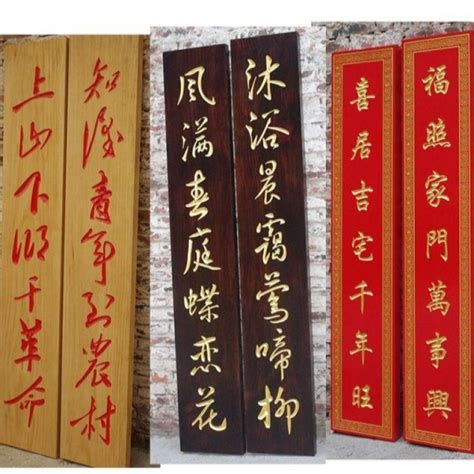 知识青年到農村
上山下鄉干革命
沐浴晨靄莺啼柳
风满春庭蝶恋花
福照家門萬事興
喜居吉宅千年旺